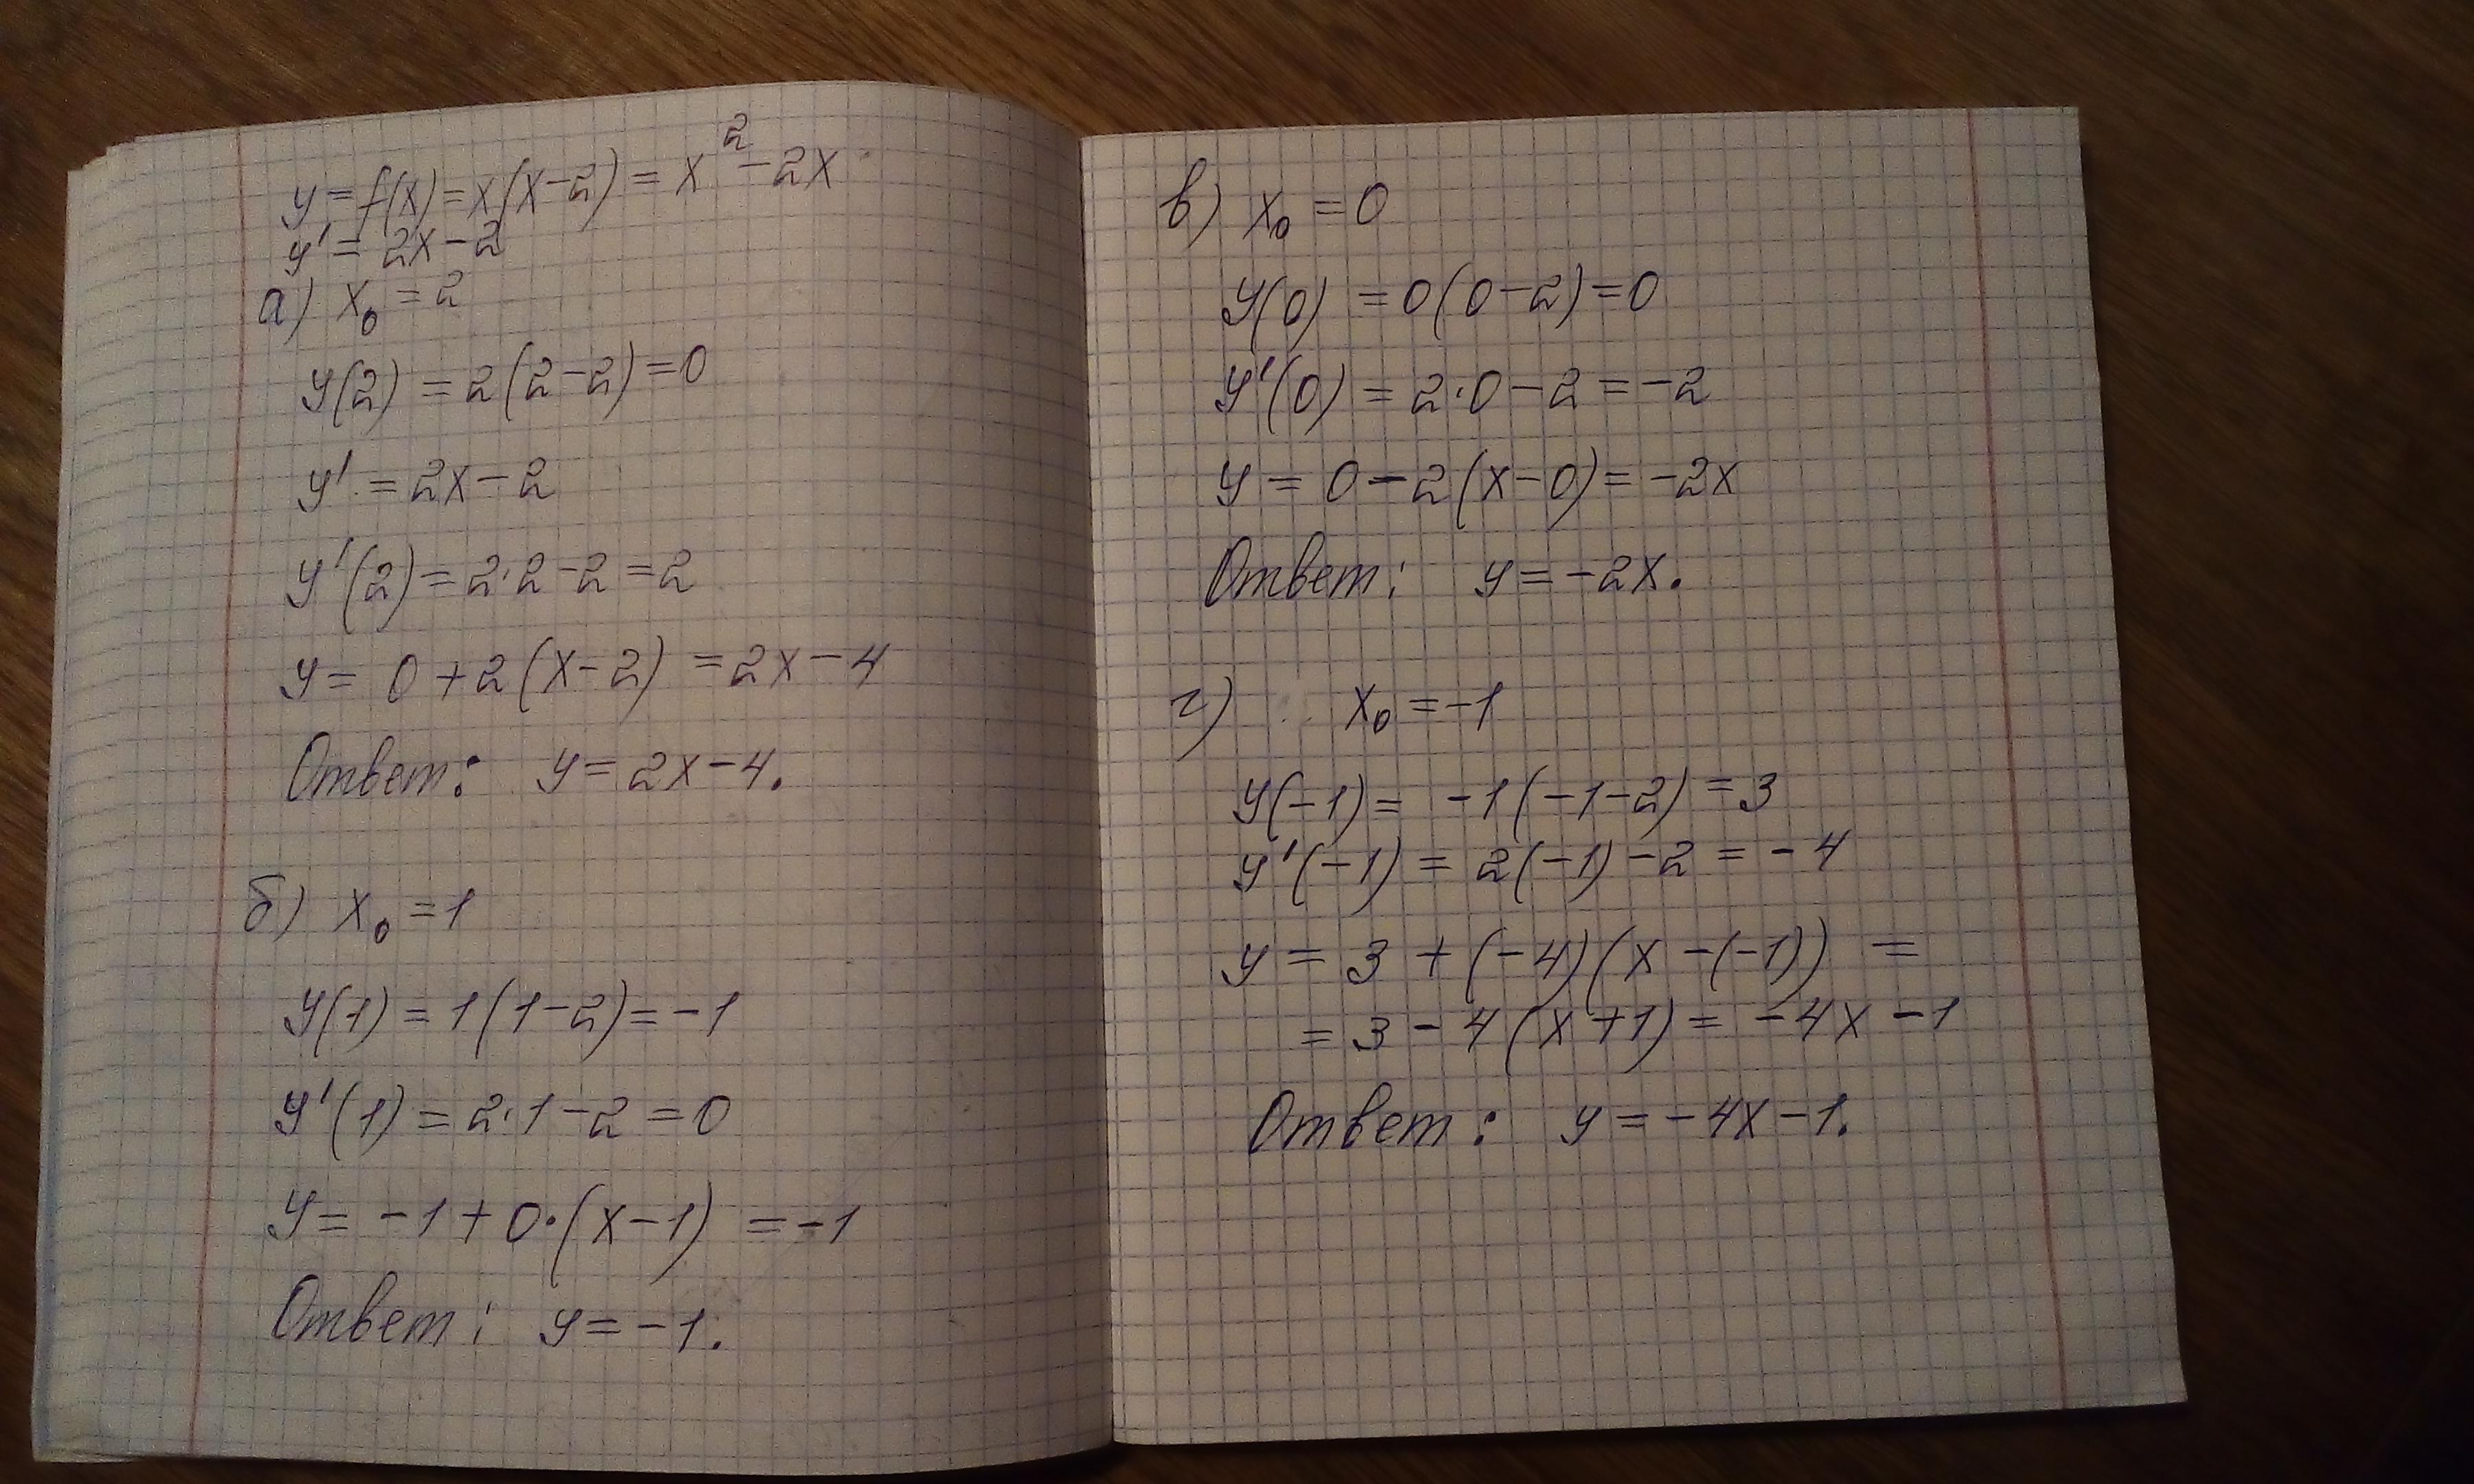 y = f(x) = x(x-2) = x² - 2x
y' = 2x - 2
а) x₀ = 2
y(2) = 2(2-2) = 0
y' = 2x - 2
y'(2) = 2·2 - 2 = 2
y = 0 + 2(x-2) = 2x - 4
Ответ: y = 2x - 4.
б) x₀ = 1
y(1) = 1(1-2) = -1
y'(1) = 2·1 - 2 = 0
y = -1 + 0·(x-1) = -1
Ответ: y = -1.
в) x₀ = 0
y(0) = 0(0-2) = 0
y'(0) = 2·0 - 2 = -2
y = 0 - 2(x-0) = -2x
Ответ: y = -2x.
г) x₀ = -1
y(-1) = -1(-1-2) = 3
y'(-1) = 2(-1) - 2 = -4
y = 3 + (-4)(x-(-1)) =
= 3 - 4(x+1) = -4x - 1
Ответ: y = -4x - 1.